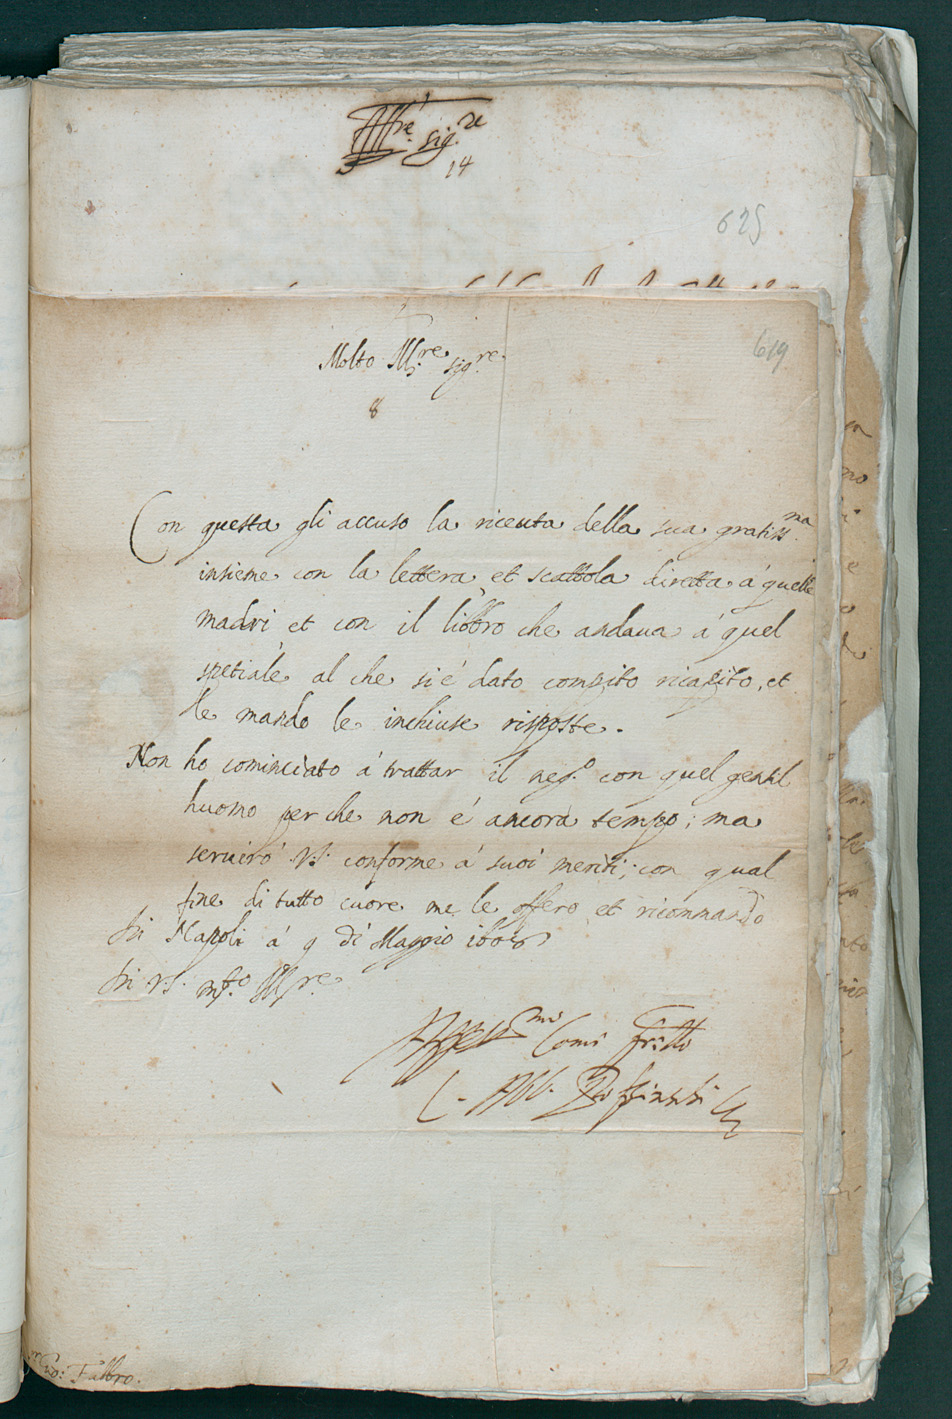 Illre. sig.re
14
625
619
Molto Ill.re sig.re
8
Con questa gli accuso la riceuta della sua gratiss.ma
insieme con la lettera, et scattola diretta a' quelle
madri et con il libbro che andaua a' quel
spetiale al che si é dato compito ricapito, et
le mando le inchiuse risposte.
Non ho cominciato á trattar il neg.o con quel gentil
huomo perche non é ancora tempo; ma
seruiró V.S. conforme á suoi meriti; con qual
fine di tutto cuore me le offero et ricommando
Di Napoli á 9 di Maggio
Di V.S. m.to Ill.re
Aff.mo Come fr̃ello
Gio: Fabbro.